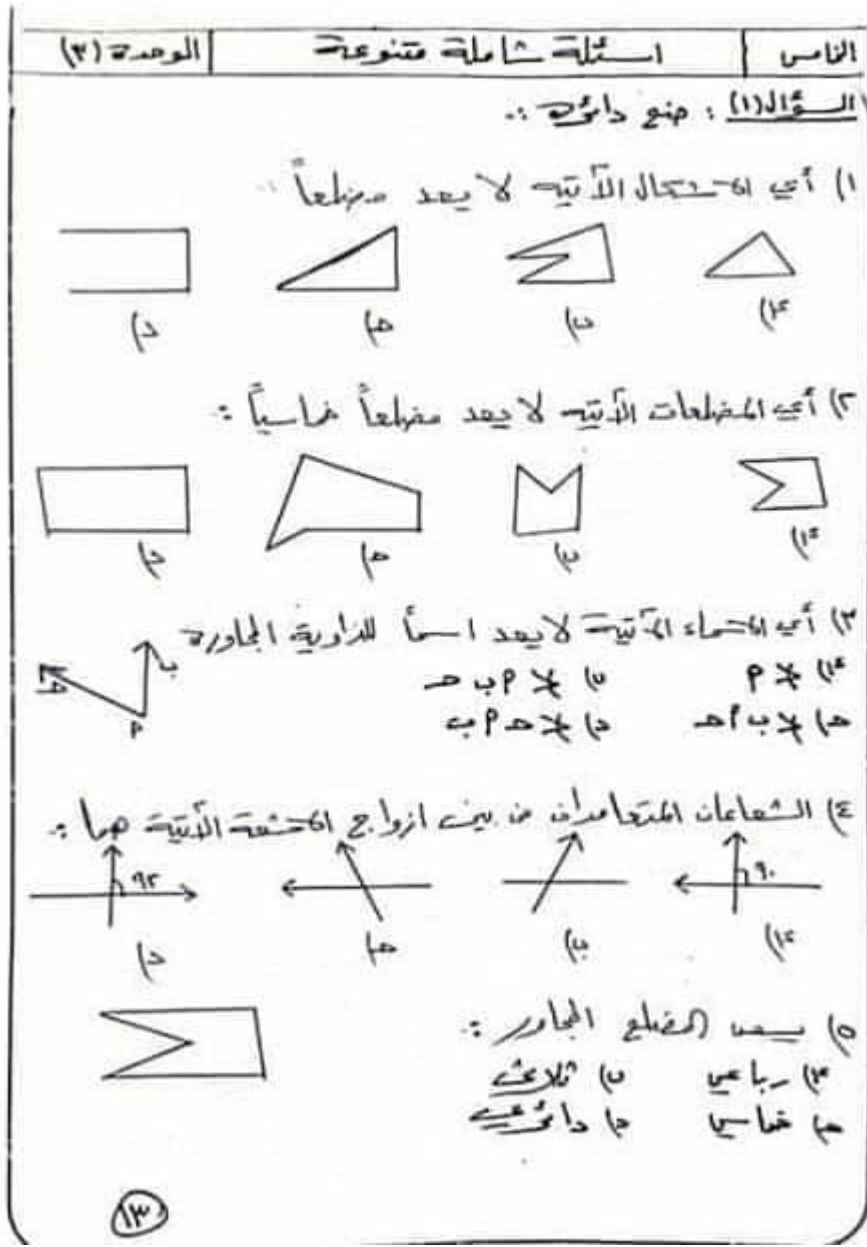 الخامس | اسئلة شاملة متنوعة | الوحدة (٣)
السؤال (١) : ضع دائرة :.
١) أي الأشكال الآتية لا يعد مضلعاً :
أ) ب) حـ) د)
٢) أي المضلعات الآتية لا يعد مضلعاً خماسياً :
أ) ب) حـ) د)
٣) أي الأسماء الآتية لا يعد اسماً للزاوية المجاورة
أ) ∢ أ ب) ∢ أ ب حـ
حـ) ∢ ب أ حـ د) ∢ حـ أ ب
ب
أ
٤) الشعاعان المتعامدان من بين ازواج الأشعة الآتية هما :.
٩٠ ٩٢
أ) ب) حـ) د)
٥) يسمى المضلع المجاور :.
أ) رباعي ب) ثلاثي
حـ) خماسي د) دائري
١٣